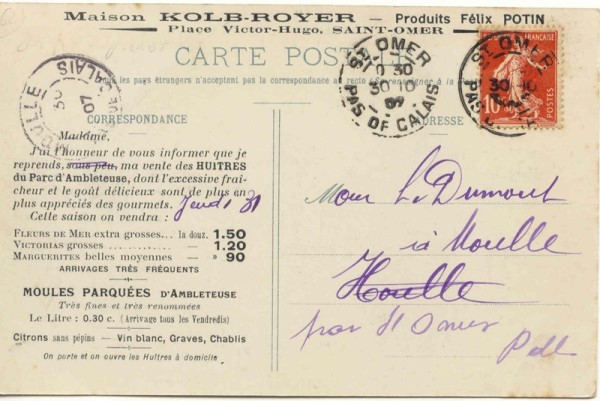 Maison KOLB-ROYER — Produits Félix POTIN
Place Victor-Hugo, SAINT-OMER
CARTE POSTALE
Tous les pays étrangers n'acceptent pas la correspondance au recto (Se renseigner à la Poste)
CORRESPONDANCE
ADRESSE
Madame,
J'ai l'honneur de vous informer que je
reprends, sous peu, ma vente des HUITRES
du Parc d'Ambleteuse, dont l'excessive fraî-
cheur et le goût délicieux sont de plus en
plus appréciés des gourmets. Jeudi 31
Cette saison on vendra :
FLEURS DE MER extra grosses... la douz. 1.50
VICTORIAS grosses ............ — 1.20
MARGUERITES belles moyennes — » 90
ARRIVAGES TRÈS FRÉQUENTS
MOULES PARQUÉES D'AMBLETEUSE
Très fines et très renommées
Le Litre : 0.30 c. (Arrivage tous les Vendredis)
Citrons sans pépins — Vin blanc, Graves, Chablis
On porte et on ouvre les Huîtres à domicile
ST OMER
30
30 10
07
PAS DE CALAIS
ST OMER
30 10
PAS
FRANÇAISE
10
POSTES
MOULLE
CALAIS
30
07
L. Dumont
à Moulle
Houlle
par St Omer